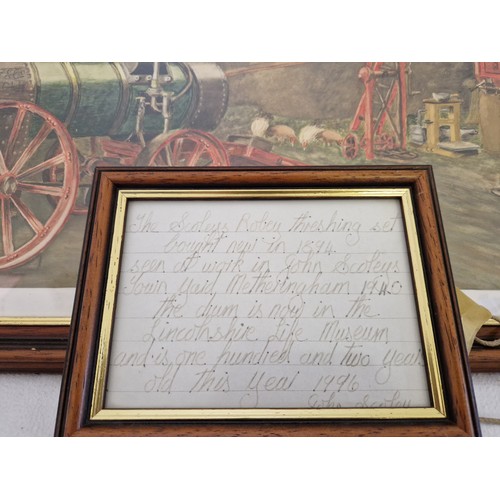 The Scoleys Robey threshing set
bought new in 1894
seen at work in John Scoleys
Town Yard Metheringham 1940
the drum is now in the
Lincolnshire Life Museum
and is one hundred and two years
old this Year 1996
John Scoley